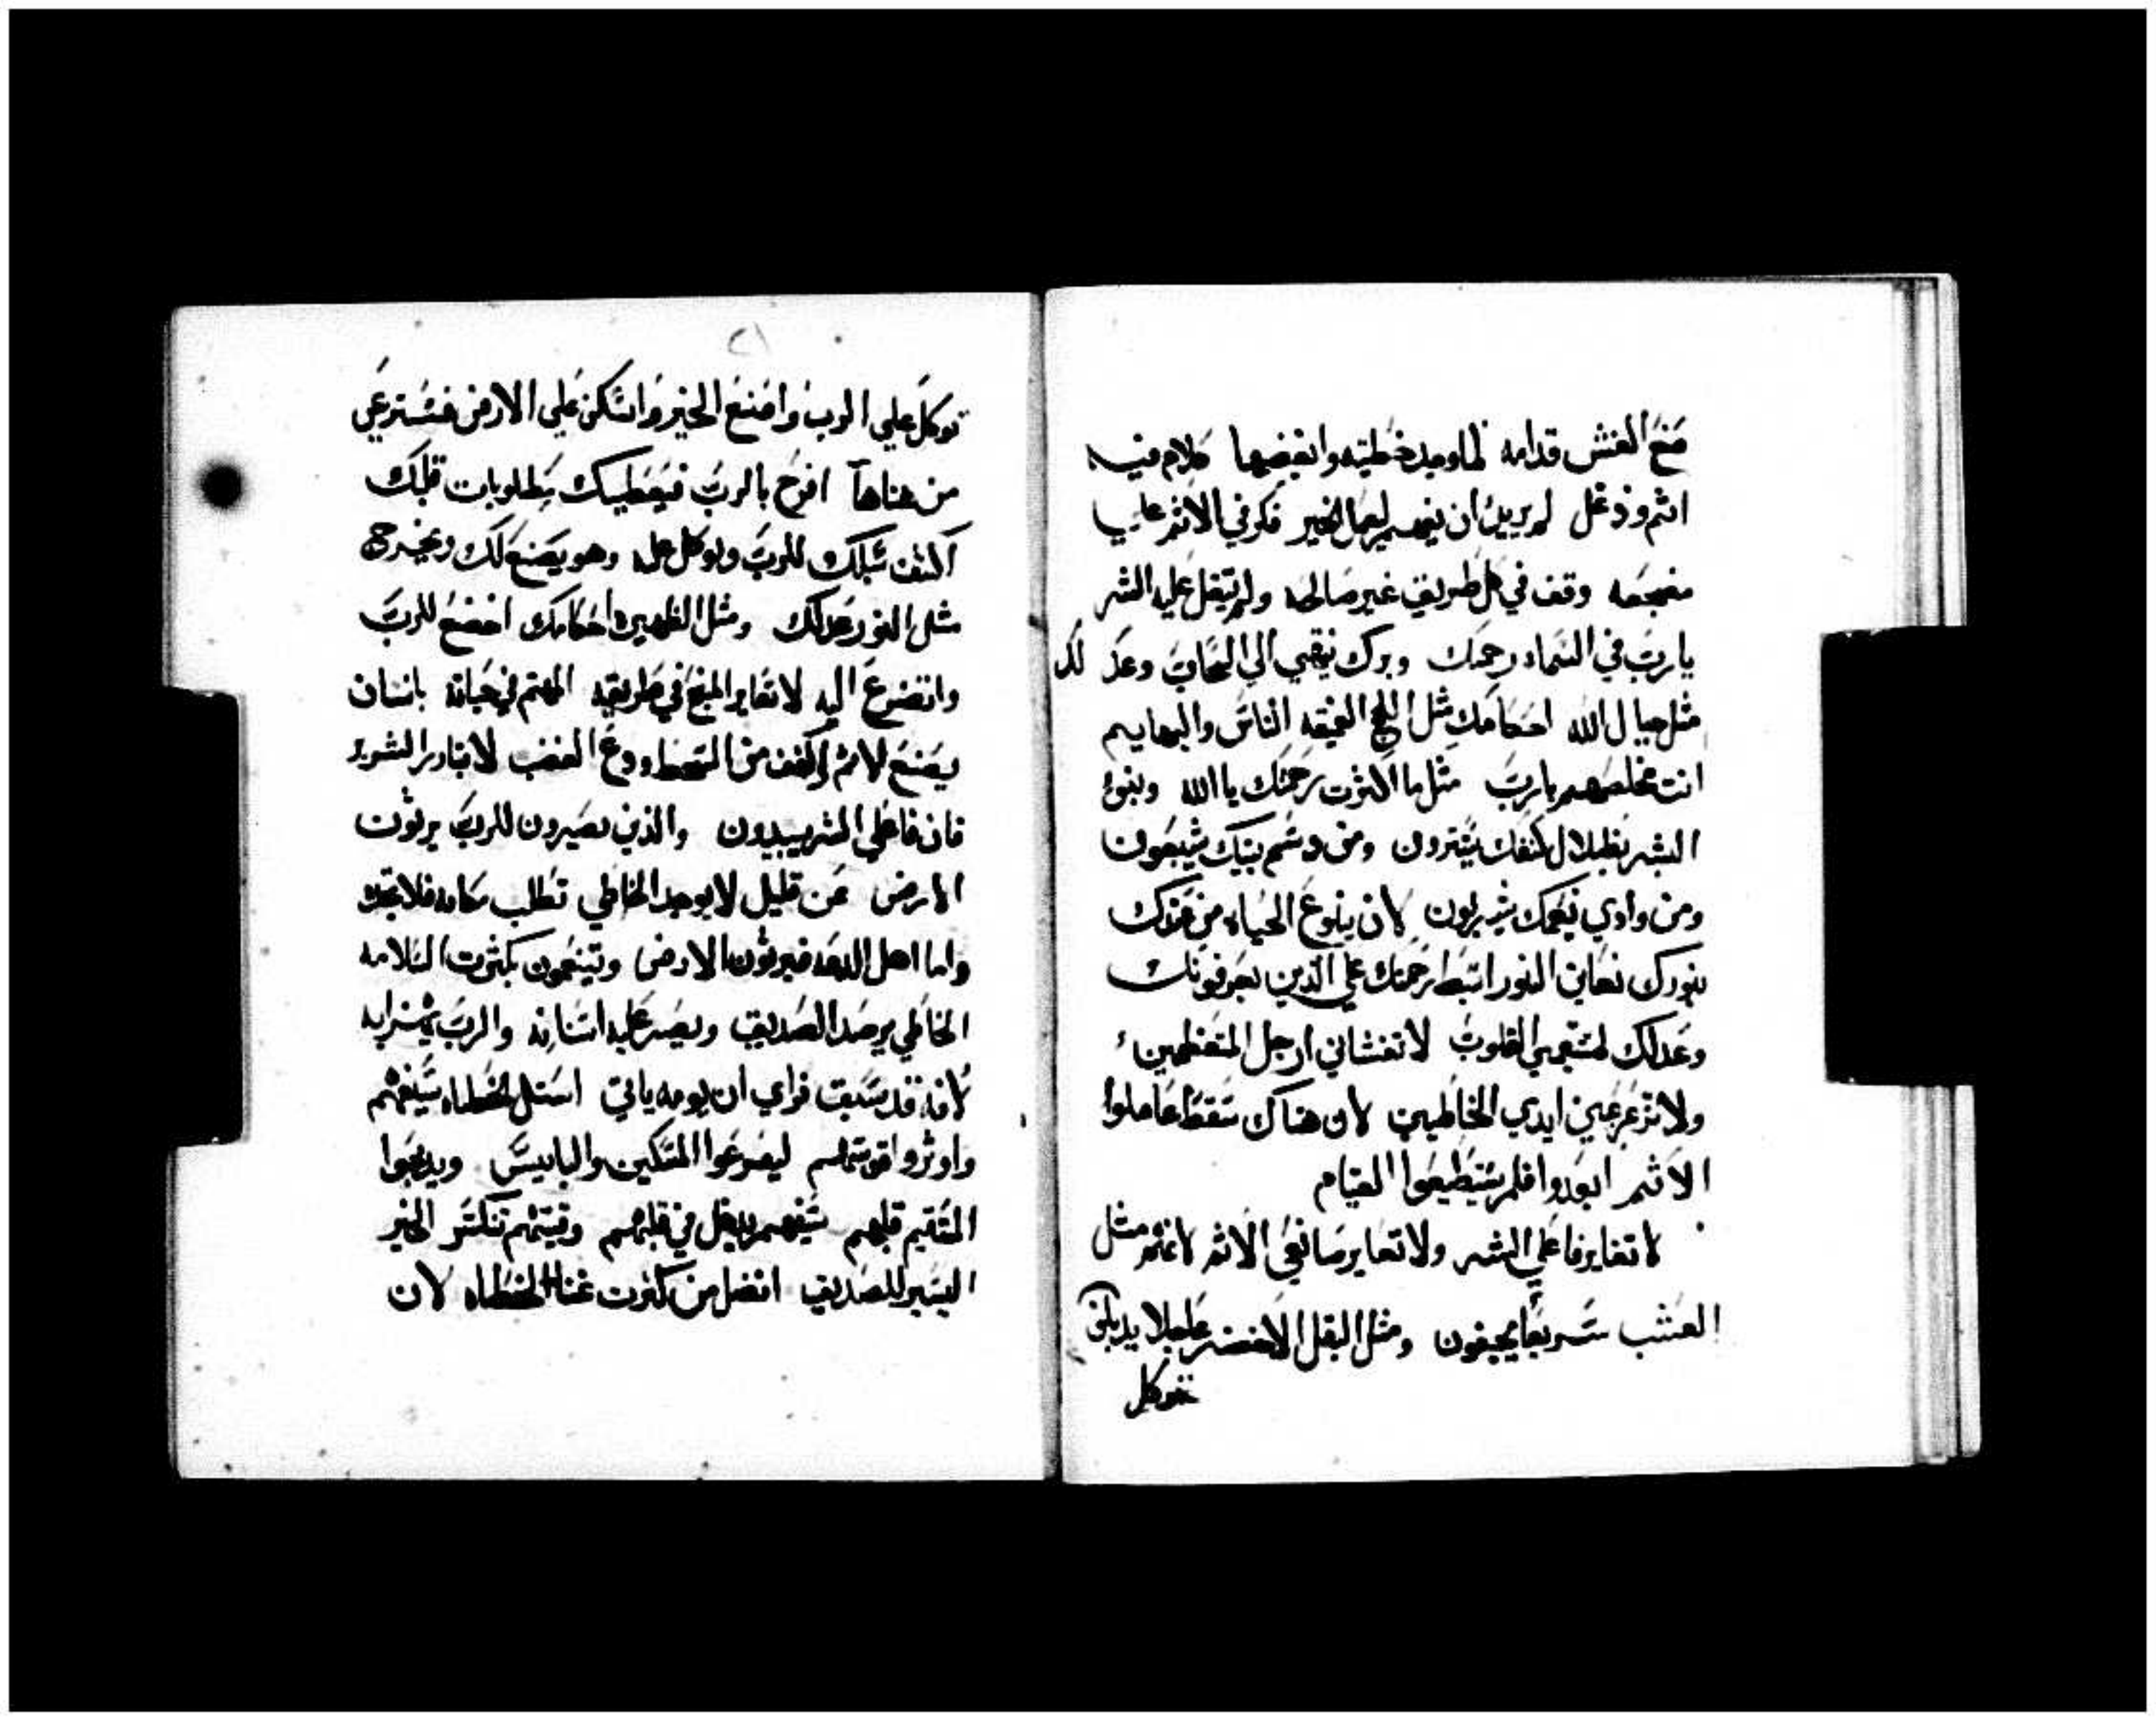 صنع الغش قدامه لما وجد خطيته وابغضها كلام فيه
اثم ودغل لم يريد ان يفهم ليعمل الخير فكر في الاثم علي
مضجعه وقف في كل طريق غير صالحه ولم يثقل عليه الشر
يا رب في السماء رحمتك وبرك ينتهي الي السحاب وعدلك
مثل جبال الله احكامك مثل اللج العميقه الناس والبهايم
انت مخلصهم يا رب مثل ما اكثرت رحمتك يا الله وبنو
البشر بظلال كنفك يستترون ومن دسم بيتك يشبعون
ومن وادي نعيمك يشربون لان ينبوع الحياه من عندك
بنورك نعاين النور ابسط رحمتك علي الذين يعرفونك
وعدلك لمستقيمي القلوب لا تغشاني ارجل المتعظمين
ولا تزعزعين ايدي الخاطيين لان هناك سقط عاملوا
الاثم ابعدوا فلم يستطيعوا القيام
لا تغاير فاعلي الشر ولا تغاير صانعي الاثم لانهم مثل
العشب سريعا يجفون ومثل البقل الاخضر عاجلا يذبلون
توكل
٢١
توكل علي الرب واصنع الخير واسكن علي الارض فتسترعي
من هناها افرح بالرب فيعطيك مطلوبات قلبك
اكشف سبلك للرب وتوكل عليه وهو يصنع لك ويخرج
مثل النور عدلك ومثل الظهيره احكامك اخضع للرب
واتضرع اليه لا تغاير المنجح في طريقه المهتم في حياته بانسان
يصنع الاثم اكفف من السخط ودع الغضب لا تبادر الشرير
فان فاعلي الشر يبيدون والذين يصبرون للرب يرثون
الارض عن قليل لا يوجد الخاطي تطلب مكانه فلا تجده
واما اهل الدعه فيرثون الارض ويتنعمون بكثرت السلامه
الخاطي يرصد الصديق ويصر عليه اسنانه والرب يستهزا به
لانه قد سبق فراي ان يومه ياتي استل الخطاه سيفهم
واوتروا قوسهم ليصرعوا المسكين والبايس ويذبحوا
المستقيم قلبهم سيفهم يدخل في قلبهم وقسيهم تنكسر الخير
اليسير للصديق افضل من كثرت غنا الخطاه لان